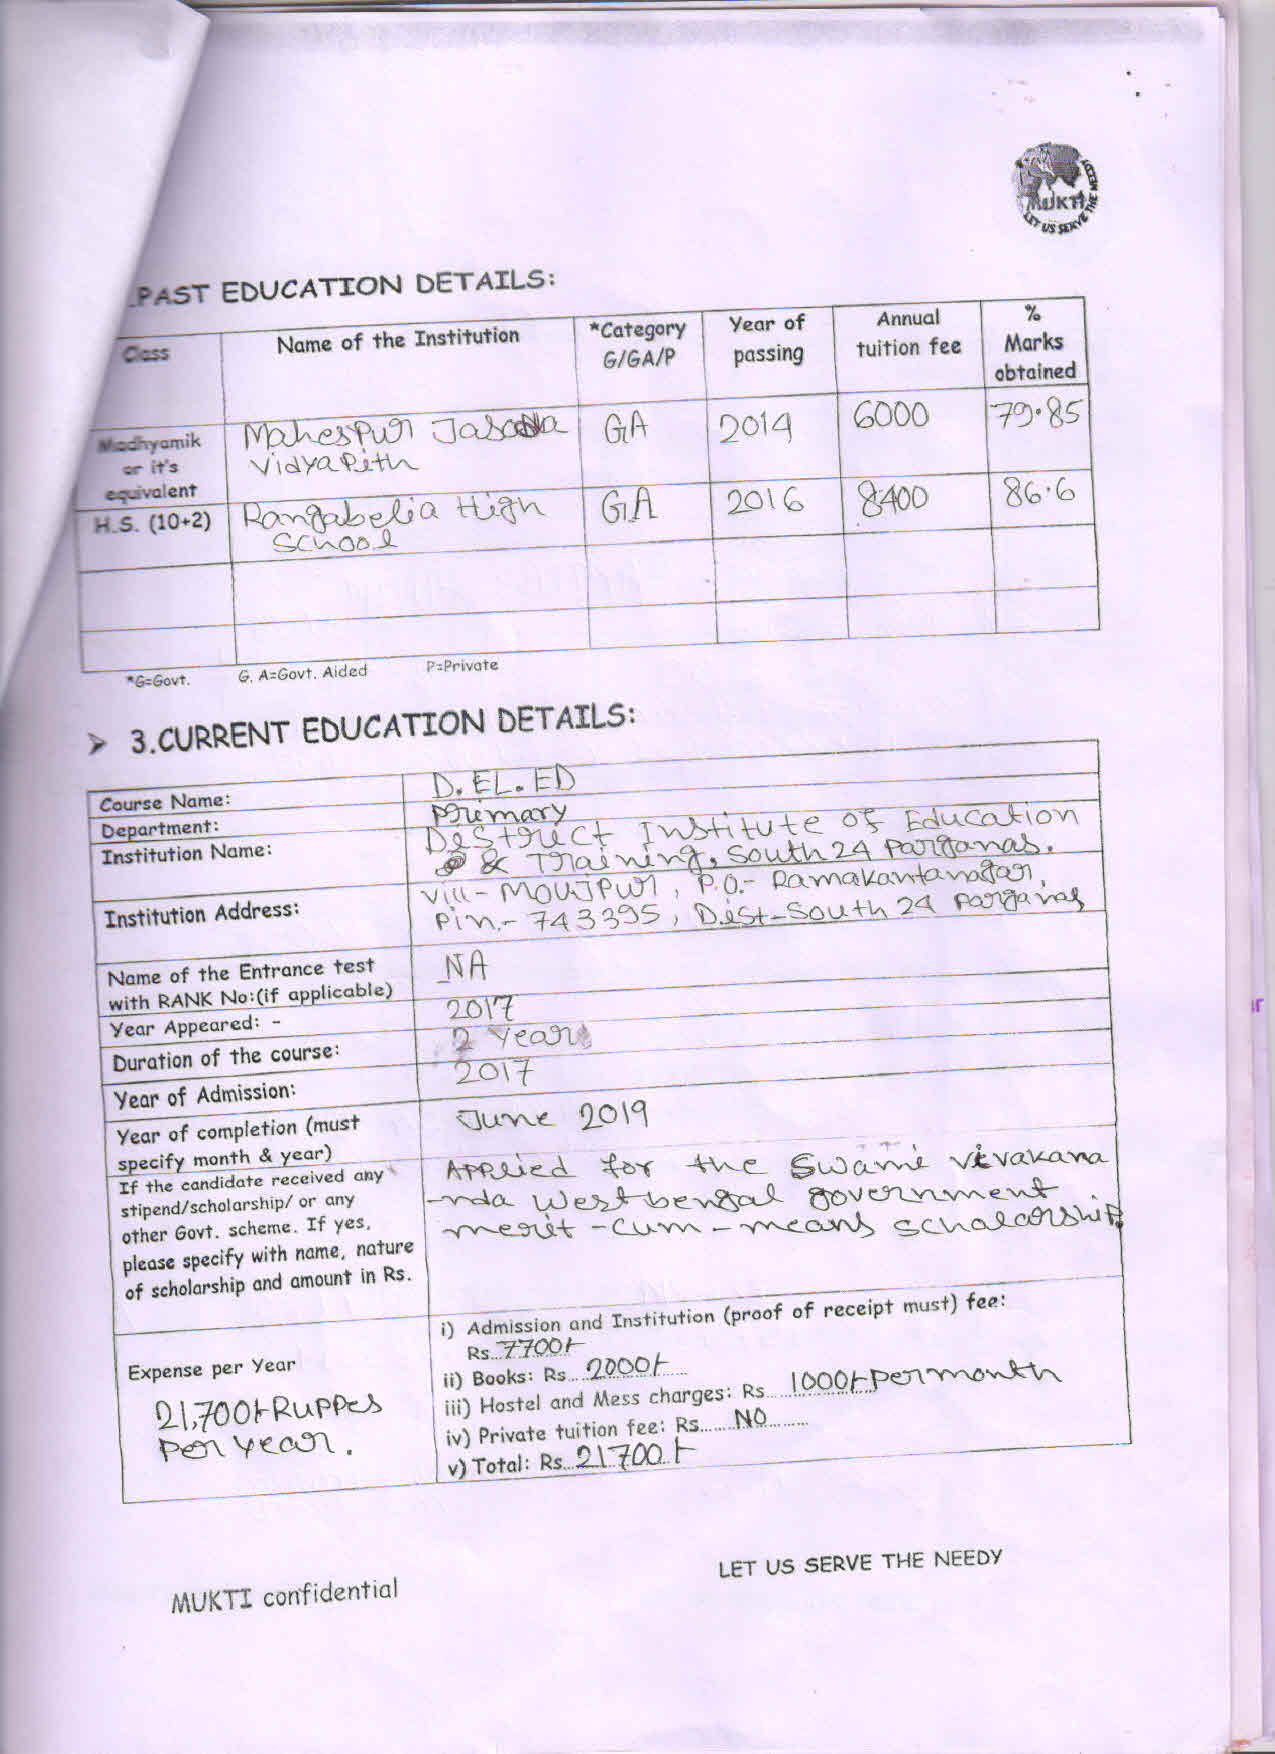 MUKTI
LET US SERVE THE NEEDY
PAST EDUCATION DETAILS:
Class
Name of the Institution
*Category
G/GA/P
Year of
passing
Annual
tuition fee
%
Marks
obtained
Madhyamik
or it's
equivalent
Mahespur
VidyaPith
GA
2014
6000
79.85
H.S. (10+2)
Rangabelia High
School
GA
2016
8400
86.6
*G=Govt. G. A=Govt. Aided P=Private
➢ 3.CURRENT EDUCATION DETAILS:
Course Name:
D.EL.ED
Department:
Primary
Institution Name:
Destrect Institute of Education
& Training, South 24 Parganas.
Institution Address:
Vill- Moujpur, P.O.- Ramakantanagar,
Pin.- 743395, Dist-South 24 Parganas
Name of the Entrance test
with RANK No:(if applicable)
NA
Year Appeared: -
2017
Duration of the course:
2 Year
Year of Admission:
2017
Year of completion (must
specify month & year)
June 2019
If the candidate received any
stipend/scholarship/ or any
other Govt. scheme. If yes,
please specify with name, nature
of scholarship and amount in Rs.
Applied for the Swami Vivakana
-nda West bengal government
merit-cum-means scholarship.
Expense per Year
21,700/- Ruppes
Per Year.
i) Admission and Institution (proof of receipt must) fee:
Rs...7700/-
ii) Books: Rs....2000/-
iii) Hostel and Mess charges: Rs.....1000/- Per month
iv) Private tuition fee: Rs.......NO.........
v) Total: Rs...21700/-
MUKTI confidential
LET US SERVE THE NEEDY